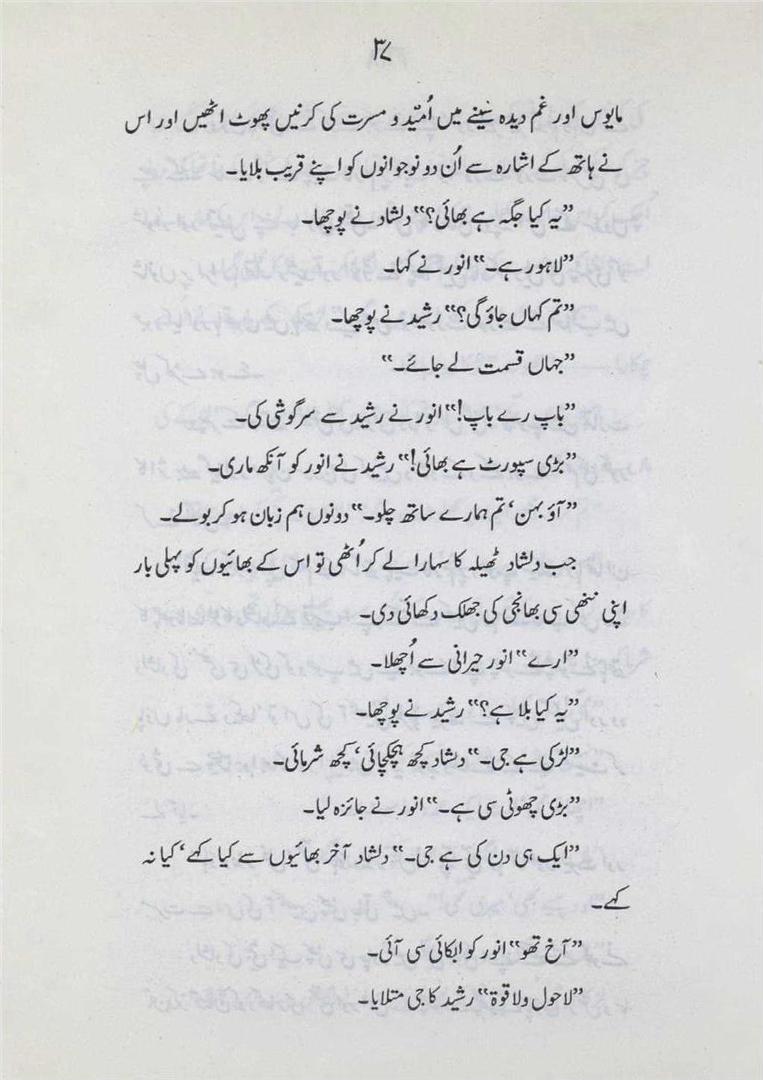 ۳۷
مایوس اور غم دیدہ سینے میں اُمتید و مسرت کی کرنیں پھوٹ اٹھیں اور اس
نے ہاتھ کے اشارہ سے اُن دو نوجوانوں کو اپنے قریب بلایا۔
”یہ کیا جگہ ہے بھائی؟“ دلشاد نے پوچھا۔
”لاہور ہے۔“ انور نے کہا۔
”تم کہاں جاؤ گی؟“ رشید نے پوچھا۔
”جہاں قسمت لے جائے۔“
”باپ رے باپ!“ انور نے رشید سے سرگوشی کی۔
”بڑی سپورٹ ہے بھائی!“ رشید نے انور کو آنکھ ماری۔
”آؤ بہن‘ تم ہمارے ساتھ چلو۔“ دونوں ہم زبان ہو کر بولے۔
جب دلشاد ٹھیلہ کا سہارا لے کر اُٹھی تو اس کے بھائیوں کو پہلی بار
اپنی ننھی سی بھانجی کی جھلک دکھائی دی۔
”ارے“ انور حیرانی سے اُچھلا۔
”یہ کیا بلا ہے؟“ رشید نے پوچھا۔
”لڑکی ہے جی۔“ دلشاد کچھ ہچکچائی‘ کچھ شرمائی۔
”بڑی چھوٹی سی ہے۔“ انور نے جائزہ لیا۔
”ایک ہی دن کی ہے جی۔“ دلشاد آخر بھائیوں سے کیا کہے‘ کیا نہ
کہے۔
”آخ تھو“ انور کو ابکائی سی آئی۔
”لاحول ولا قوۃ“ رشید کا جی متلایا۔